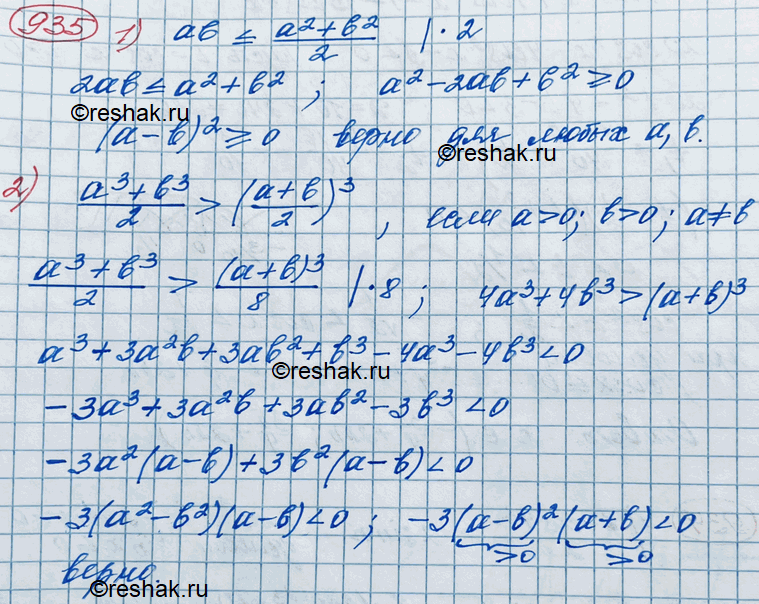 935 1) ab ≤ (a² + b²)/2 | · 2
2ab ≤ a² + b² ; a² - 2ab + b² ≥ 0
©reshak.ru
(a - b)² ≥ 0 верно для любых a, b.
©reshak.ru
2) (a³ + b³)/2 > ((a + b)/2)³ , если a > 0; b > 0; a ≠ b
©reshak.ru
(a³ + b³)/2 > (a + b)³/8 | · 8 ; 4a³ + 4b³ > (a + b)³
a³ + 3a²b + 3ab² + b³ - 4a³ - 4b³ < 0
©reshak.ru
- 3a³ + 3a²b + 3ab² - 3b³ < 0
©reshak.ru
- 3a²(a - b) + 3b²(a - b) < 0
©reshak.ru
- 3(a² - b²)(a - b) < 0 ; - 3(a - b)²(a + b) < 0
>0 >0
верно.
©reshak.ru